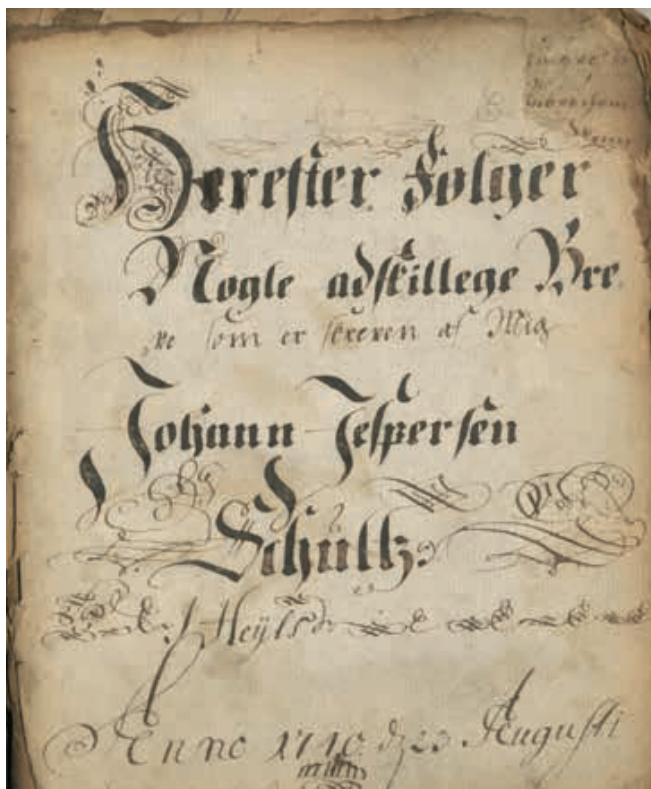 Herefter Følger
Nogle adskillege Bre
ve som er skreven af Mig
Johann Jespersen
Schultz
Heÿls
Anno 1740 d 23 Augusti